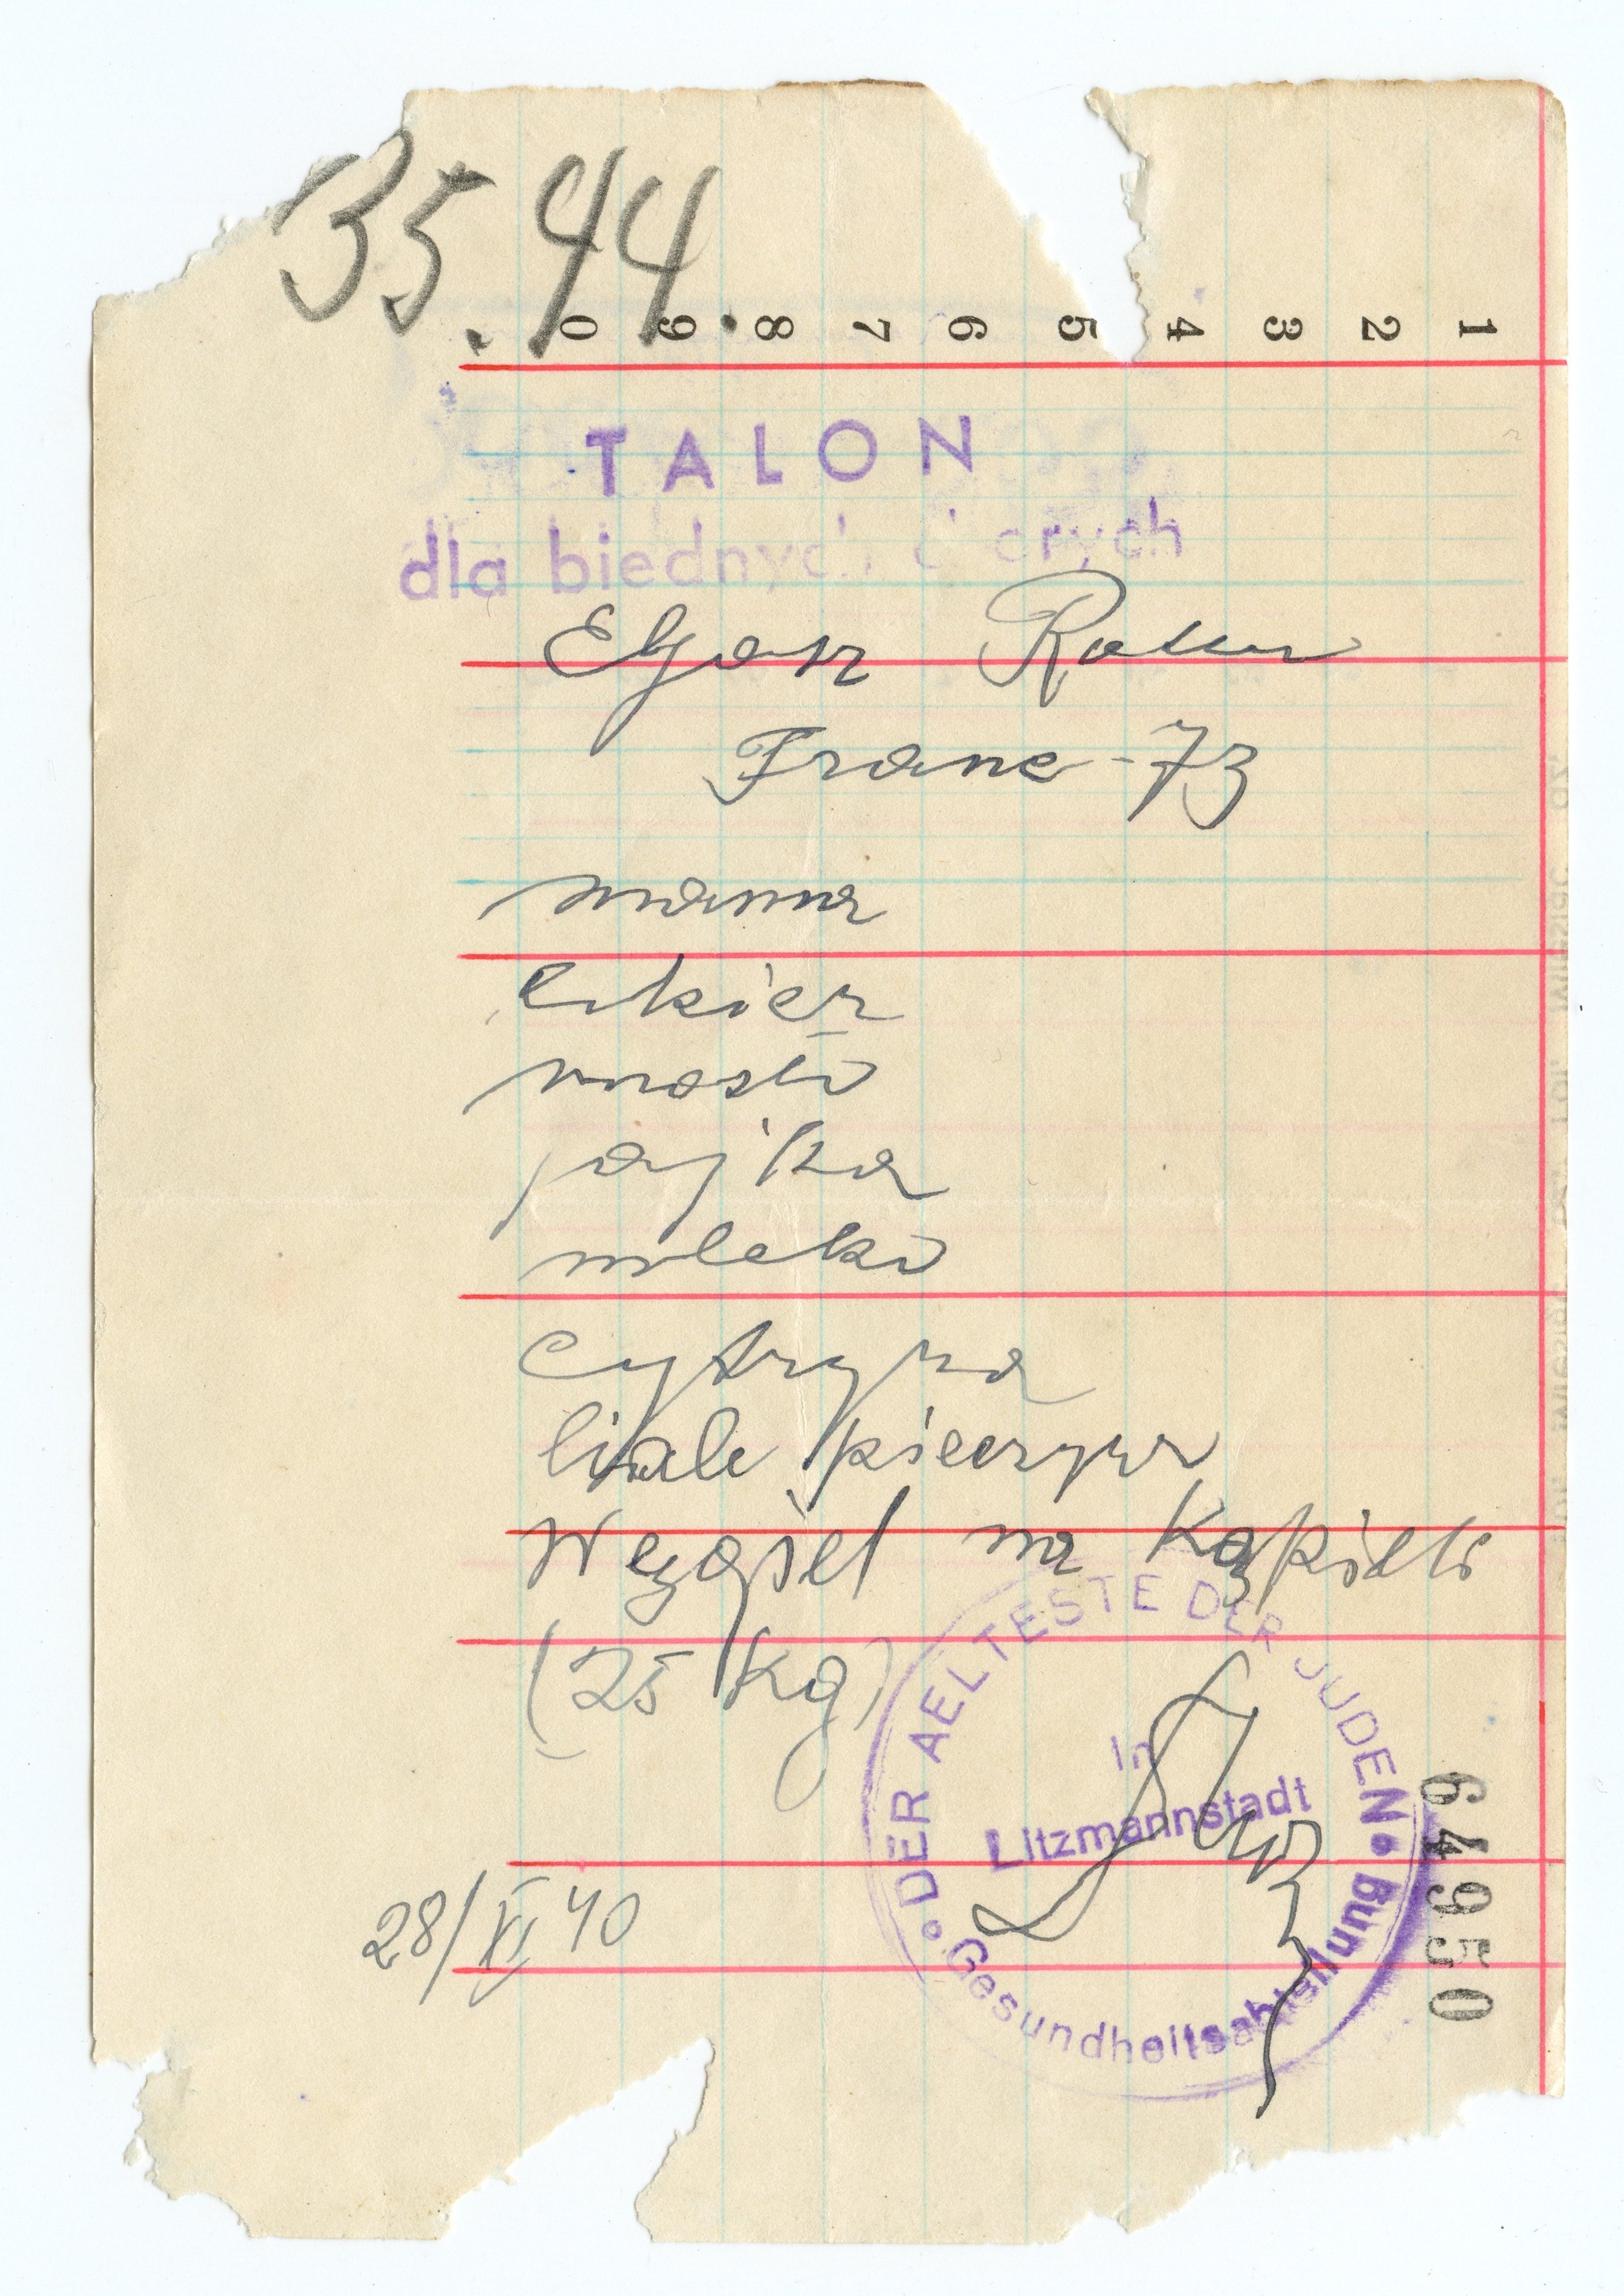 35.44.
0 9 8 7 6 5 4 3 2 1
TALON
dla biednych chorych
Frane - 73
manna
cukier
masło
jajka
mleko
cytryna
białe pieczywo
Węgiel na Kąpiele
(25 Kg)
DER AELTESTE DER JUDEN
In
Litzmannstadt
Gesundheitsabteilung
64950
28/XI 40